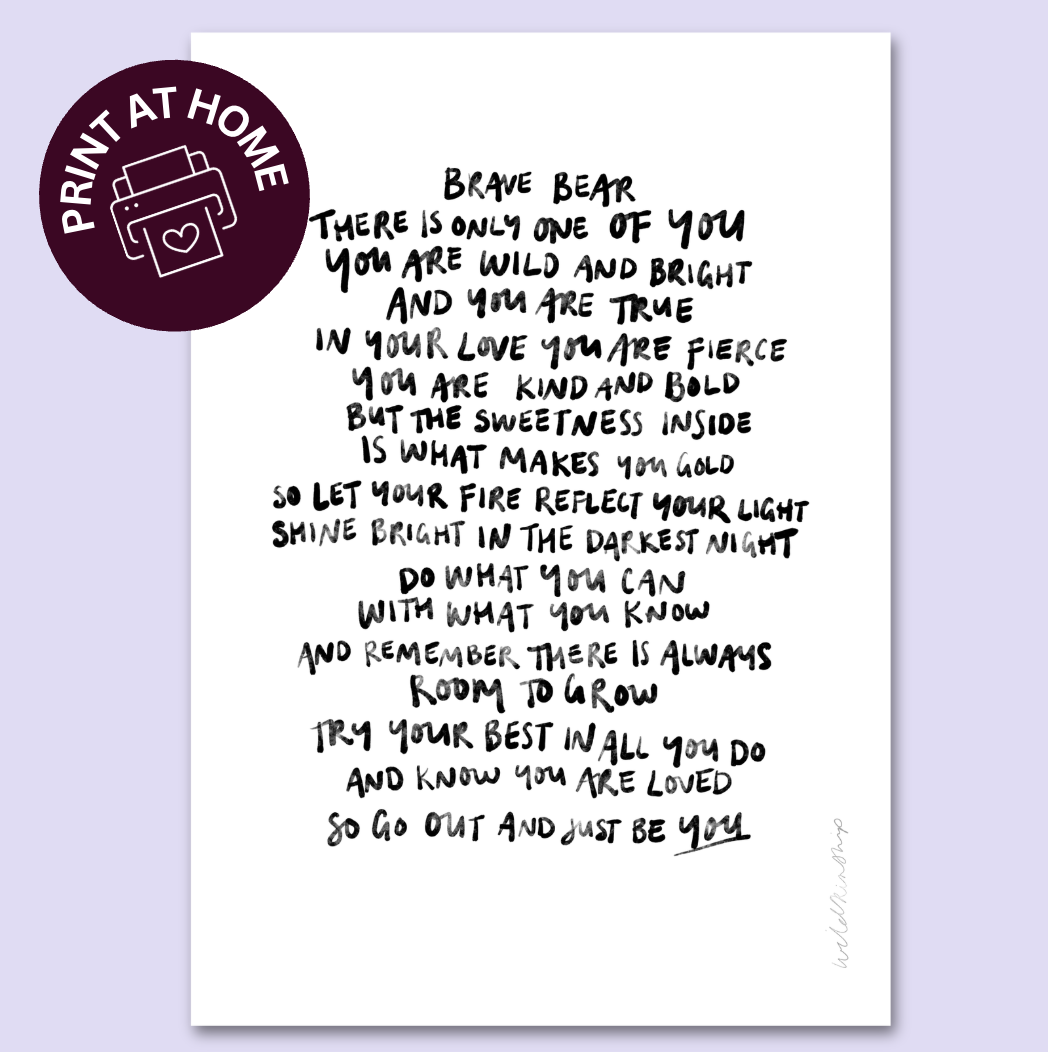 PRINT AT HOME
BRAVE BEAR
THERE IS ONLY ONE OF YOU
YOU ARE WILD AND BRIGHT
AND YOU ARE TRUE
IN YOUR LOVE YOU ARE FIERCE
YOU ARE KIND AND BOLD
BUT THE SWEETNESS INSIDE
IS WHAT MAKES YOU GOLD
SO LET YOUR FIRE REFLECT YOUR LIGHT
SHINE BRIGHT IN THE DARKEST NIGHT
DO WHAT YOU CAN
WITH WHAT YOU KNOW
AND REMEMBER THERE IS ALWAYS
ROOM TO GROW
TRY YOUR BEST IN ALL YOU DO
AND KNOW YOU ARE LOVED
SO GO OUT AND JUST BE YOU
wildkinship